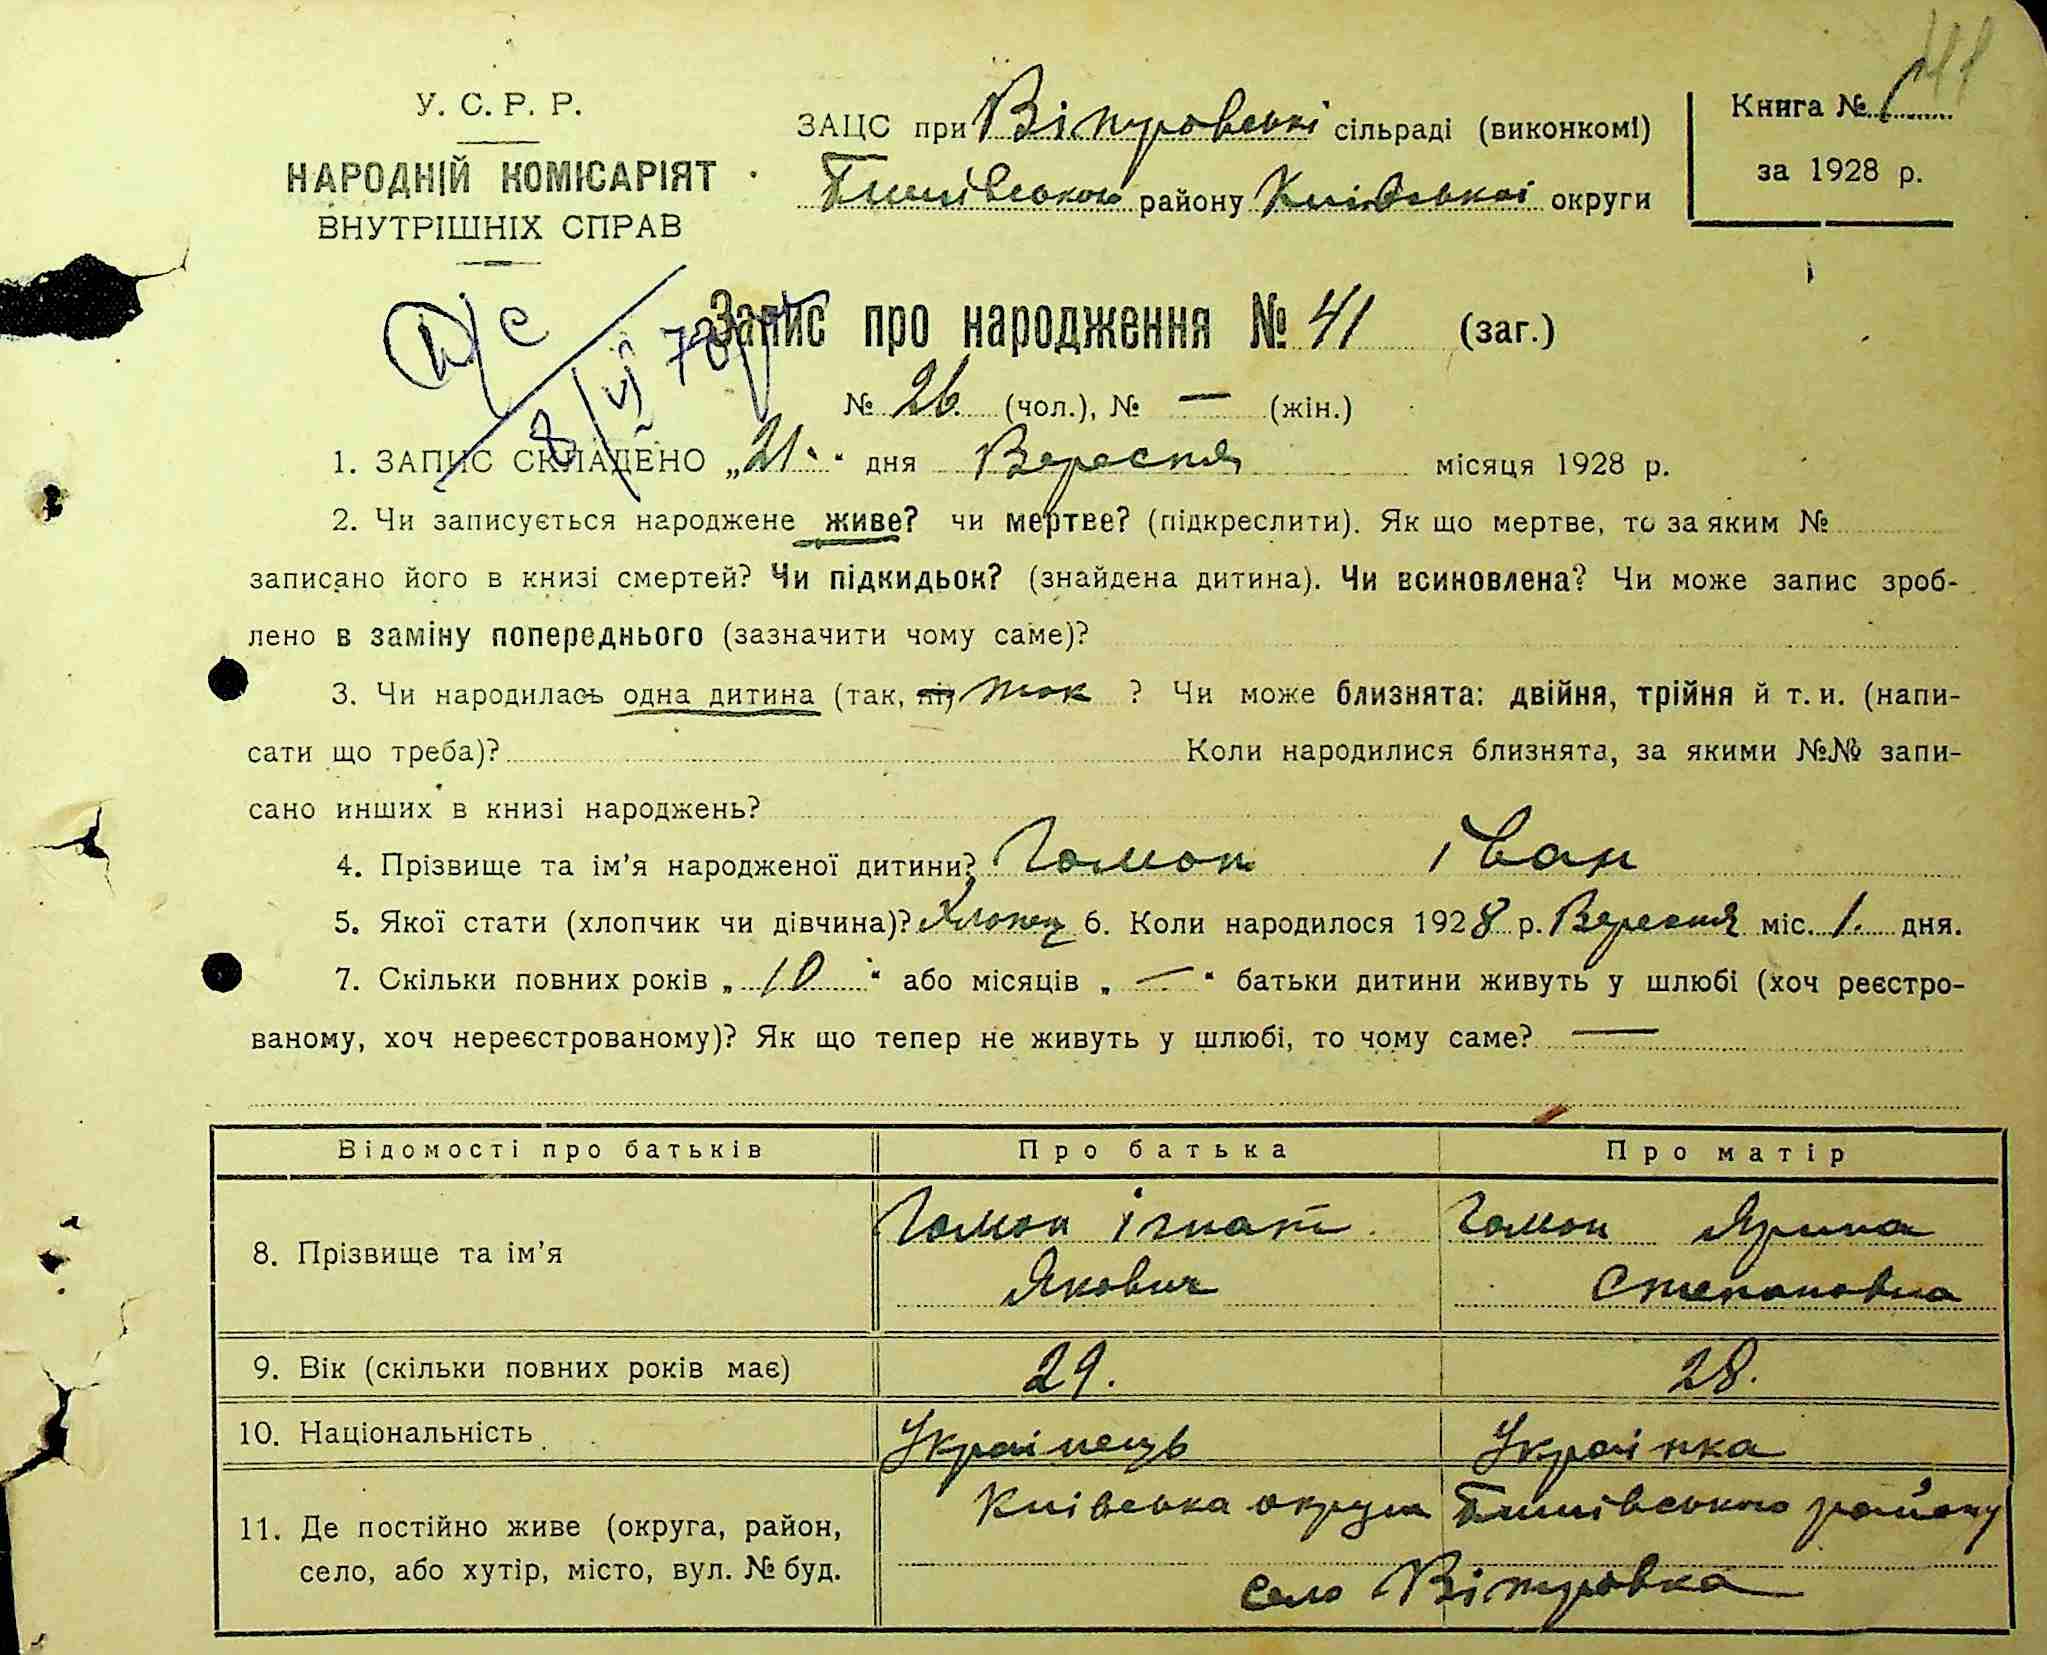 У. С. Р. Р.
НАРОДНІЙ КОМІСАРІЯТ
ВНУТРІШНІХ СПРАВ
ЗАЦС при Вітровські сільраді (виконкомі)
району Київської округи
Книга № 1
за 1928 р.
Запис про народження № 41 (заг.)
№ 26 (чол.), № — (жін.)
1. ЗАПИС СКЛАДЕНО „21“ дня Вересня місяця 1928 р.
2. Чи записується народжене живе? чи мертве? (підкреслити). Як що мертве, то за яким №
записано його в книзі смертей? Чи підкидьок? (знайдена дитина). Чи всиновлена? Чи може запис зроб-
лено в заміну попереднього (зазначити чому саме)?
3. Чи народилась одна дитина (так, ні) так ? Чи може близнята: двійня, трійня й т. и. (напи-
сати що треба)? Коли народилися близнята, за якими №№ запи-
сано инших в книзі народжень?
4. Прізвище та ім’я народженої дитини? Гамон Іван
5. Якої стати (хлопчик чи дівчина)? Хлопец 6. Коли народилося 1928 р. Вересня міс. 1. дня.
7. Скільки повних років „10“ або місяців „—“ батьки дитини живуть у шлюбі (хоч реєстро-
ваному, хоч нереєстрованому)? Як що тепер не живуть у шлюбі, то чому саме? —
Відомості про батьків Про батька Про матір
8. Прізвище та ім’я Гамон Ігнат Якович Гамон Ярина Степановна
9. Вік (скільки повних років має) 29. 28.
10. Національність Українець Українка
11. Де постійно живе (округа, район, село, або хутір, місто, вул. № буд. Київська округа району
село Вітровка